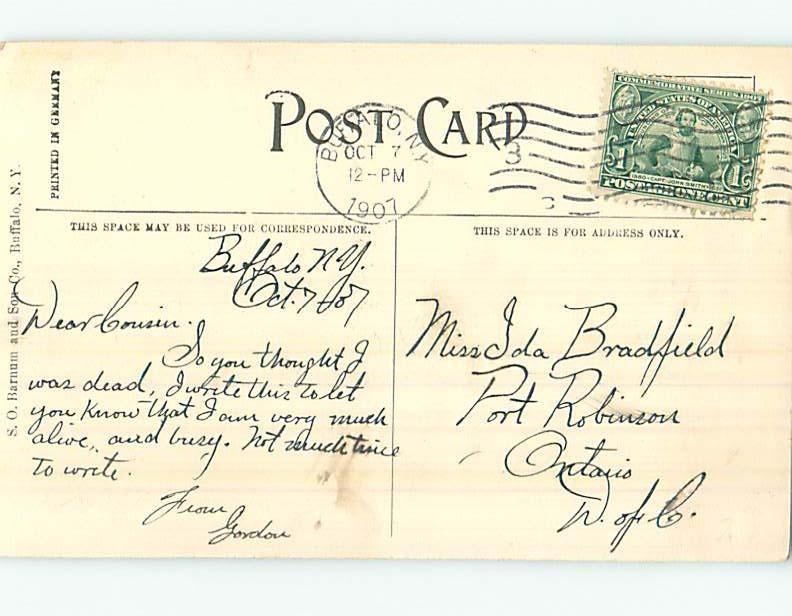 PRINTED IN GERMANY
S. O. Barnum and Son Co., Buffalo, N. Y.
POST CARD
BUFFALO, N.Y.
OCT 7
12-PM
1907
3
COMMEMORATIVE SERIES 1907
UNITED STATES OF AMERICA
1 1
1580 · CAPT. JOHN SMITH
POSTAGE ONE CENT
THIS SPACE MAY BE USED FOR CORRESPONDENCE.
Buffalo N.Y.
Oct. 7-07
Dear Cousin.
So you thought I
was dead, I write this to let
you know that I am very much
alive, and busy. Not much time
to write.
From
Gordon
THIS SPACE IS FOR ADDRESS ONLY.
Miss Ida Bradfield
Port Robinson
Ontario
D. of C.